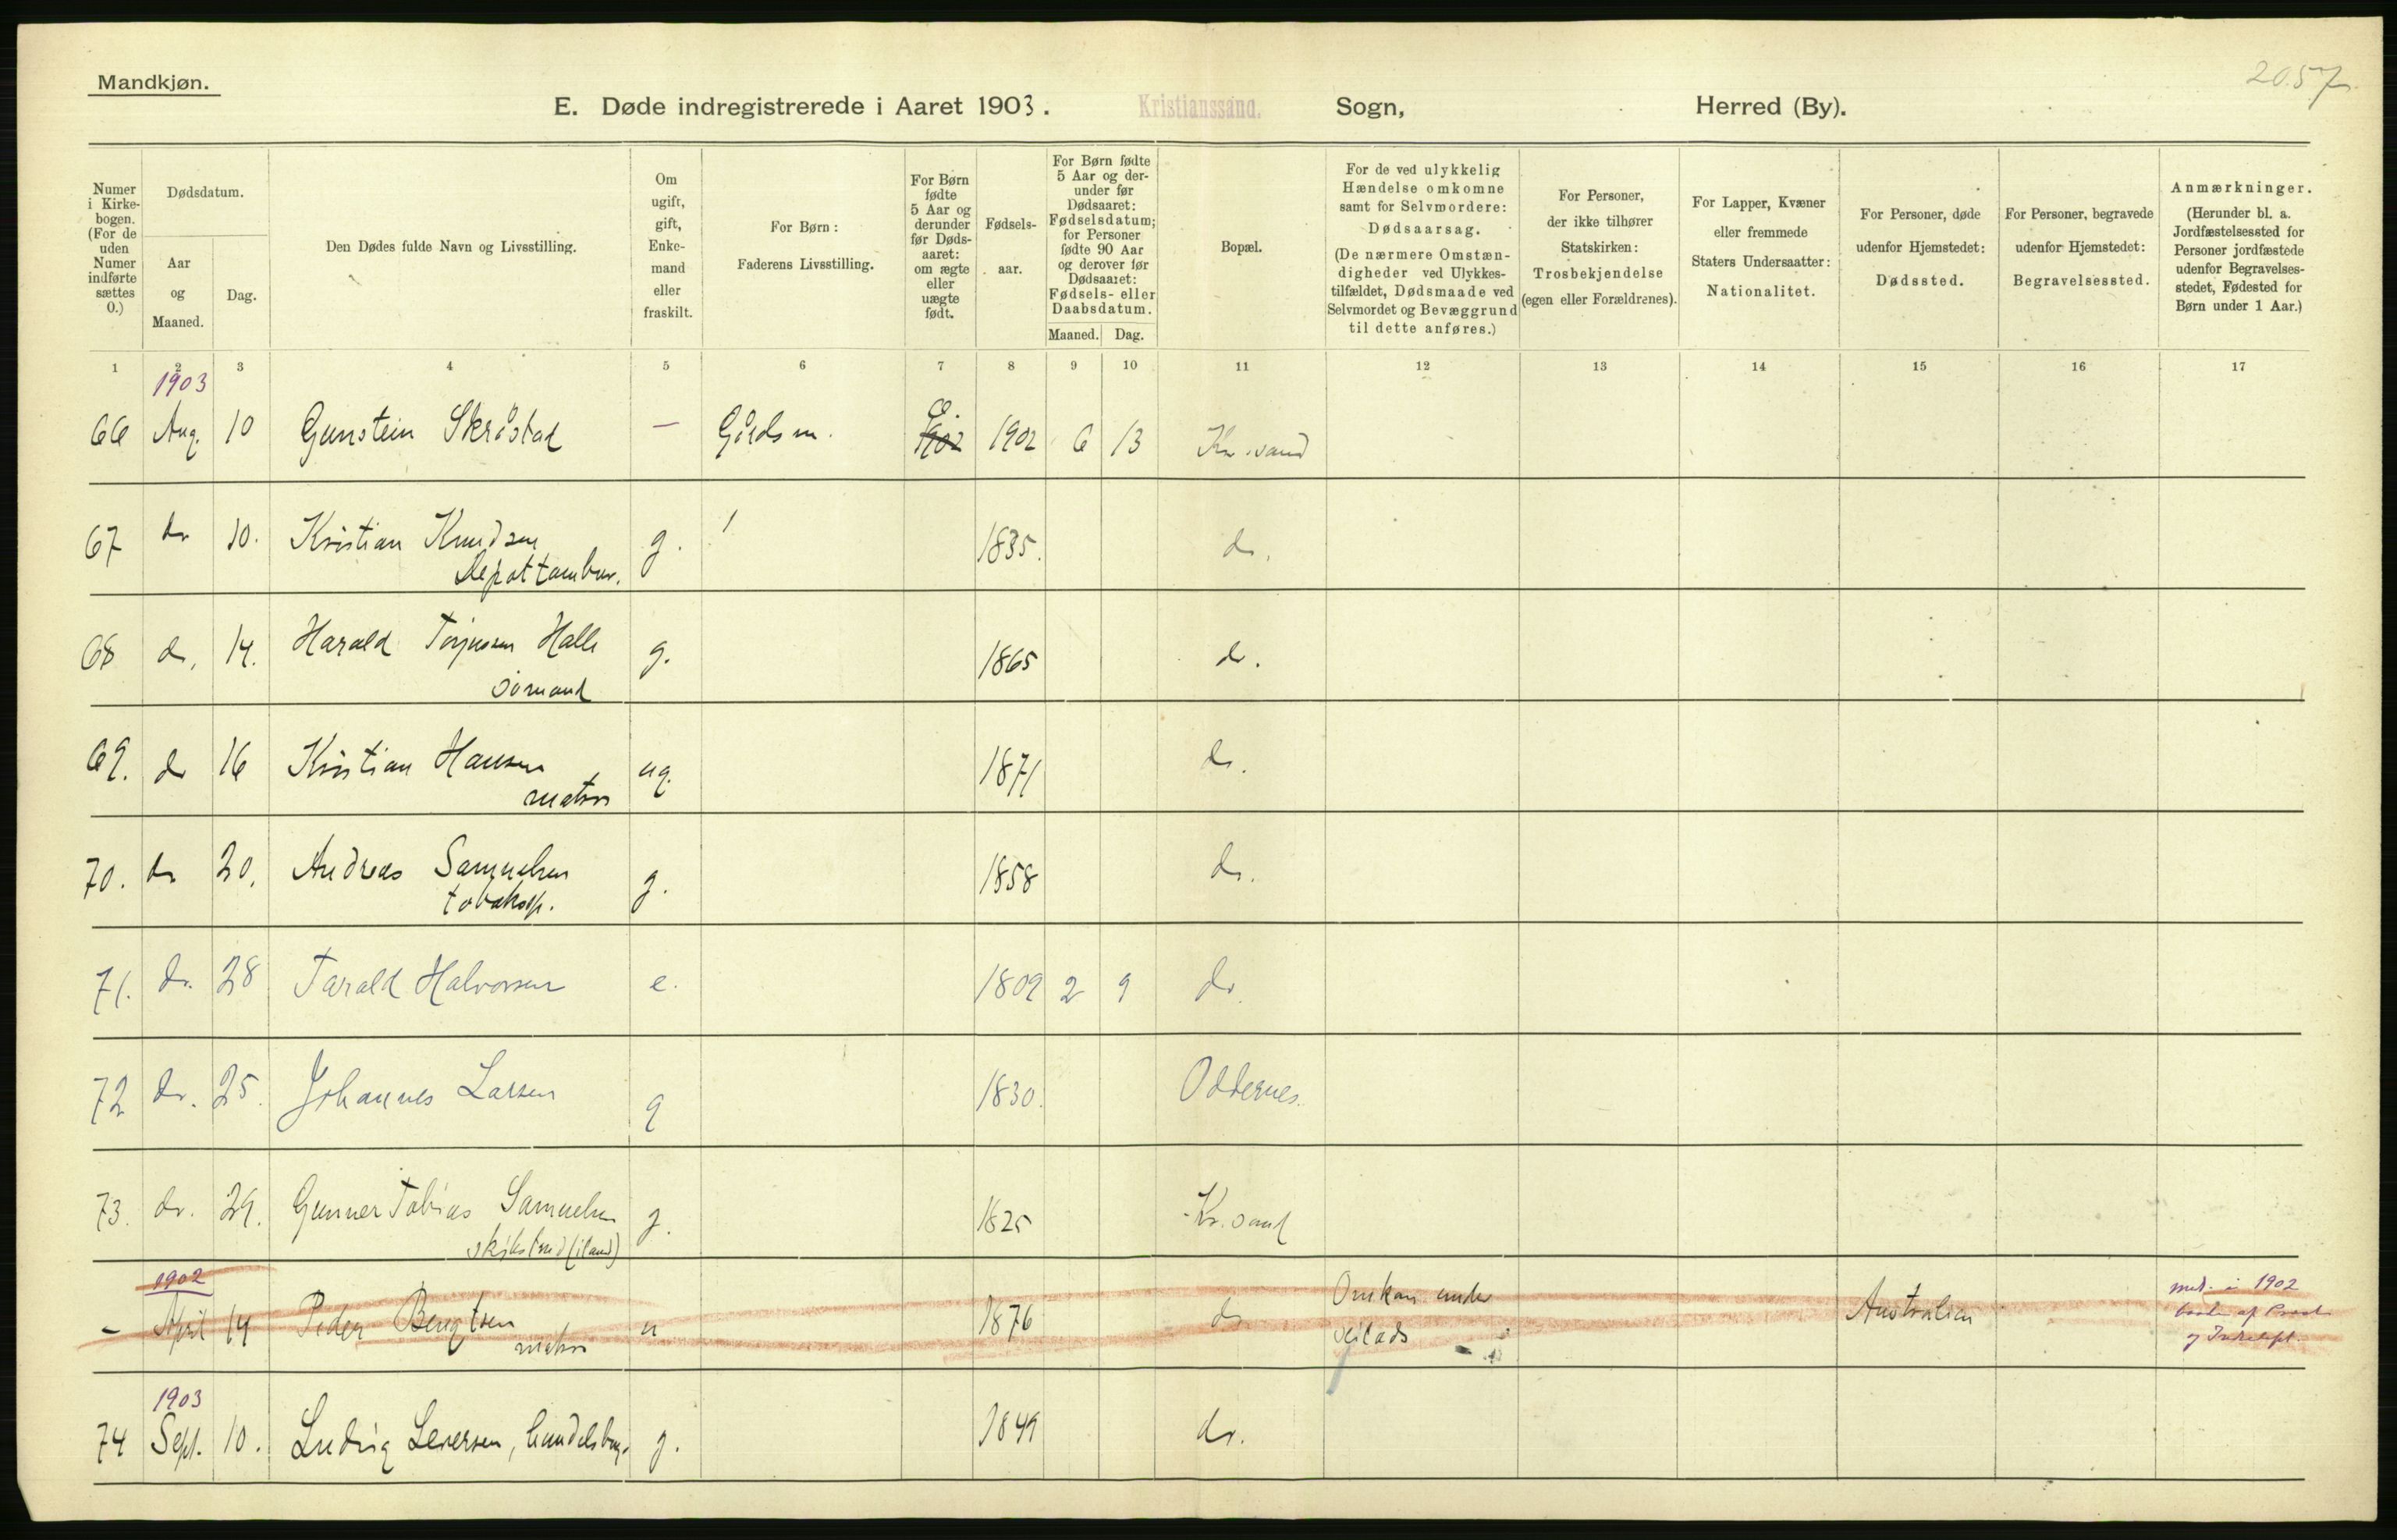 Mandkjøn.
2057
E. Døde indregistrerede i Aaret 1903. Kristianssand. Sogn, Herred (By).
Numer i Kirkebogen. (For de uden Numer indførte sættes 0.)
Dødsdatum.
Aar og Maaned.
Dag.
Den Dødes fulde Navn og Livsstilling.
Om ugift, gift, Enkemand eller fraskilt.
For Børn:
Faderens Livsstilling.
For Børn fødte 5 Aar og derunder før Dødsaaret: om ægte eller uægte født.
Fødselsaar.
For Børn fødte 5 Aar og derunder før Dødsaaret: Fødselsdatum; for Personer fødte 90 Aar og derover før Dødsaaret: Fødsels- eller Daabsdatum.
Maaned. Dag.
Bopæl.
For de ved ulykkelig Hændelse omkomne samt for Selvmordere: Dødsaarsag.
(De nærmere Omstændigheder ved Ulykkestilfældet, Dødsmaade ved Selvmordet og Bevæggrund til dette anføres.)
For Personer, der ikke tilhører Statskirken: Trosbekjendelse (egen eller Forældrenes).
For Lapper, Kvæner eller fremmede Staters Undersaatter: Nationalitet.
For Personer, døde udenfor Hjemstedet: Dødssted.
For Personer, begravede udenfor Hjemstedet: Begravelsessted.
Anmærkninger.
(Herunder bl. a. Jordfæstelsessted for Personer jordfæstede udenfor Begravelsesstedet, Fødested for Børn under 1 Aar.)
1 2 3 4 5 6 7 8 9 10 11 12 13 14 15 16 17
1903
66 Aug. 10 Gunstein Skråstad — Gårdsm. 1902 1902 6 13 Kr.sand
67 do 10. Kristian Knudsen g. 1835. do.
Depottambur.
68 do. 14. Harald Torjussen Halle g. 1865 do.
sømand
69. do 16 Kristian Hansen ug. 1871 do.
matros
70. do 20. Andreas Samuelsen g. 1858 do.
tobaksp.
71. do. 28 Tarald Halvorsen e. 1809 2 9 do.
72 do. 25. Johannes Larsen g 1830. Oddernes.
73. do. 29. Gunner Tobias Samuelsen g. 1825 Kr.sand
1902
– April 14 Peder Bengtsen u 1876 do Omkom under Australien med. i 1902
matros seilads
1903
74 Sept. 10. Ludvig Seversen, handelsbog. g. 1849 do.